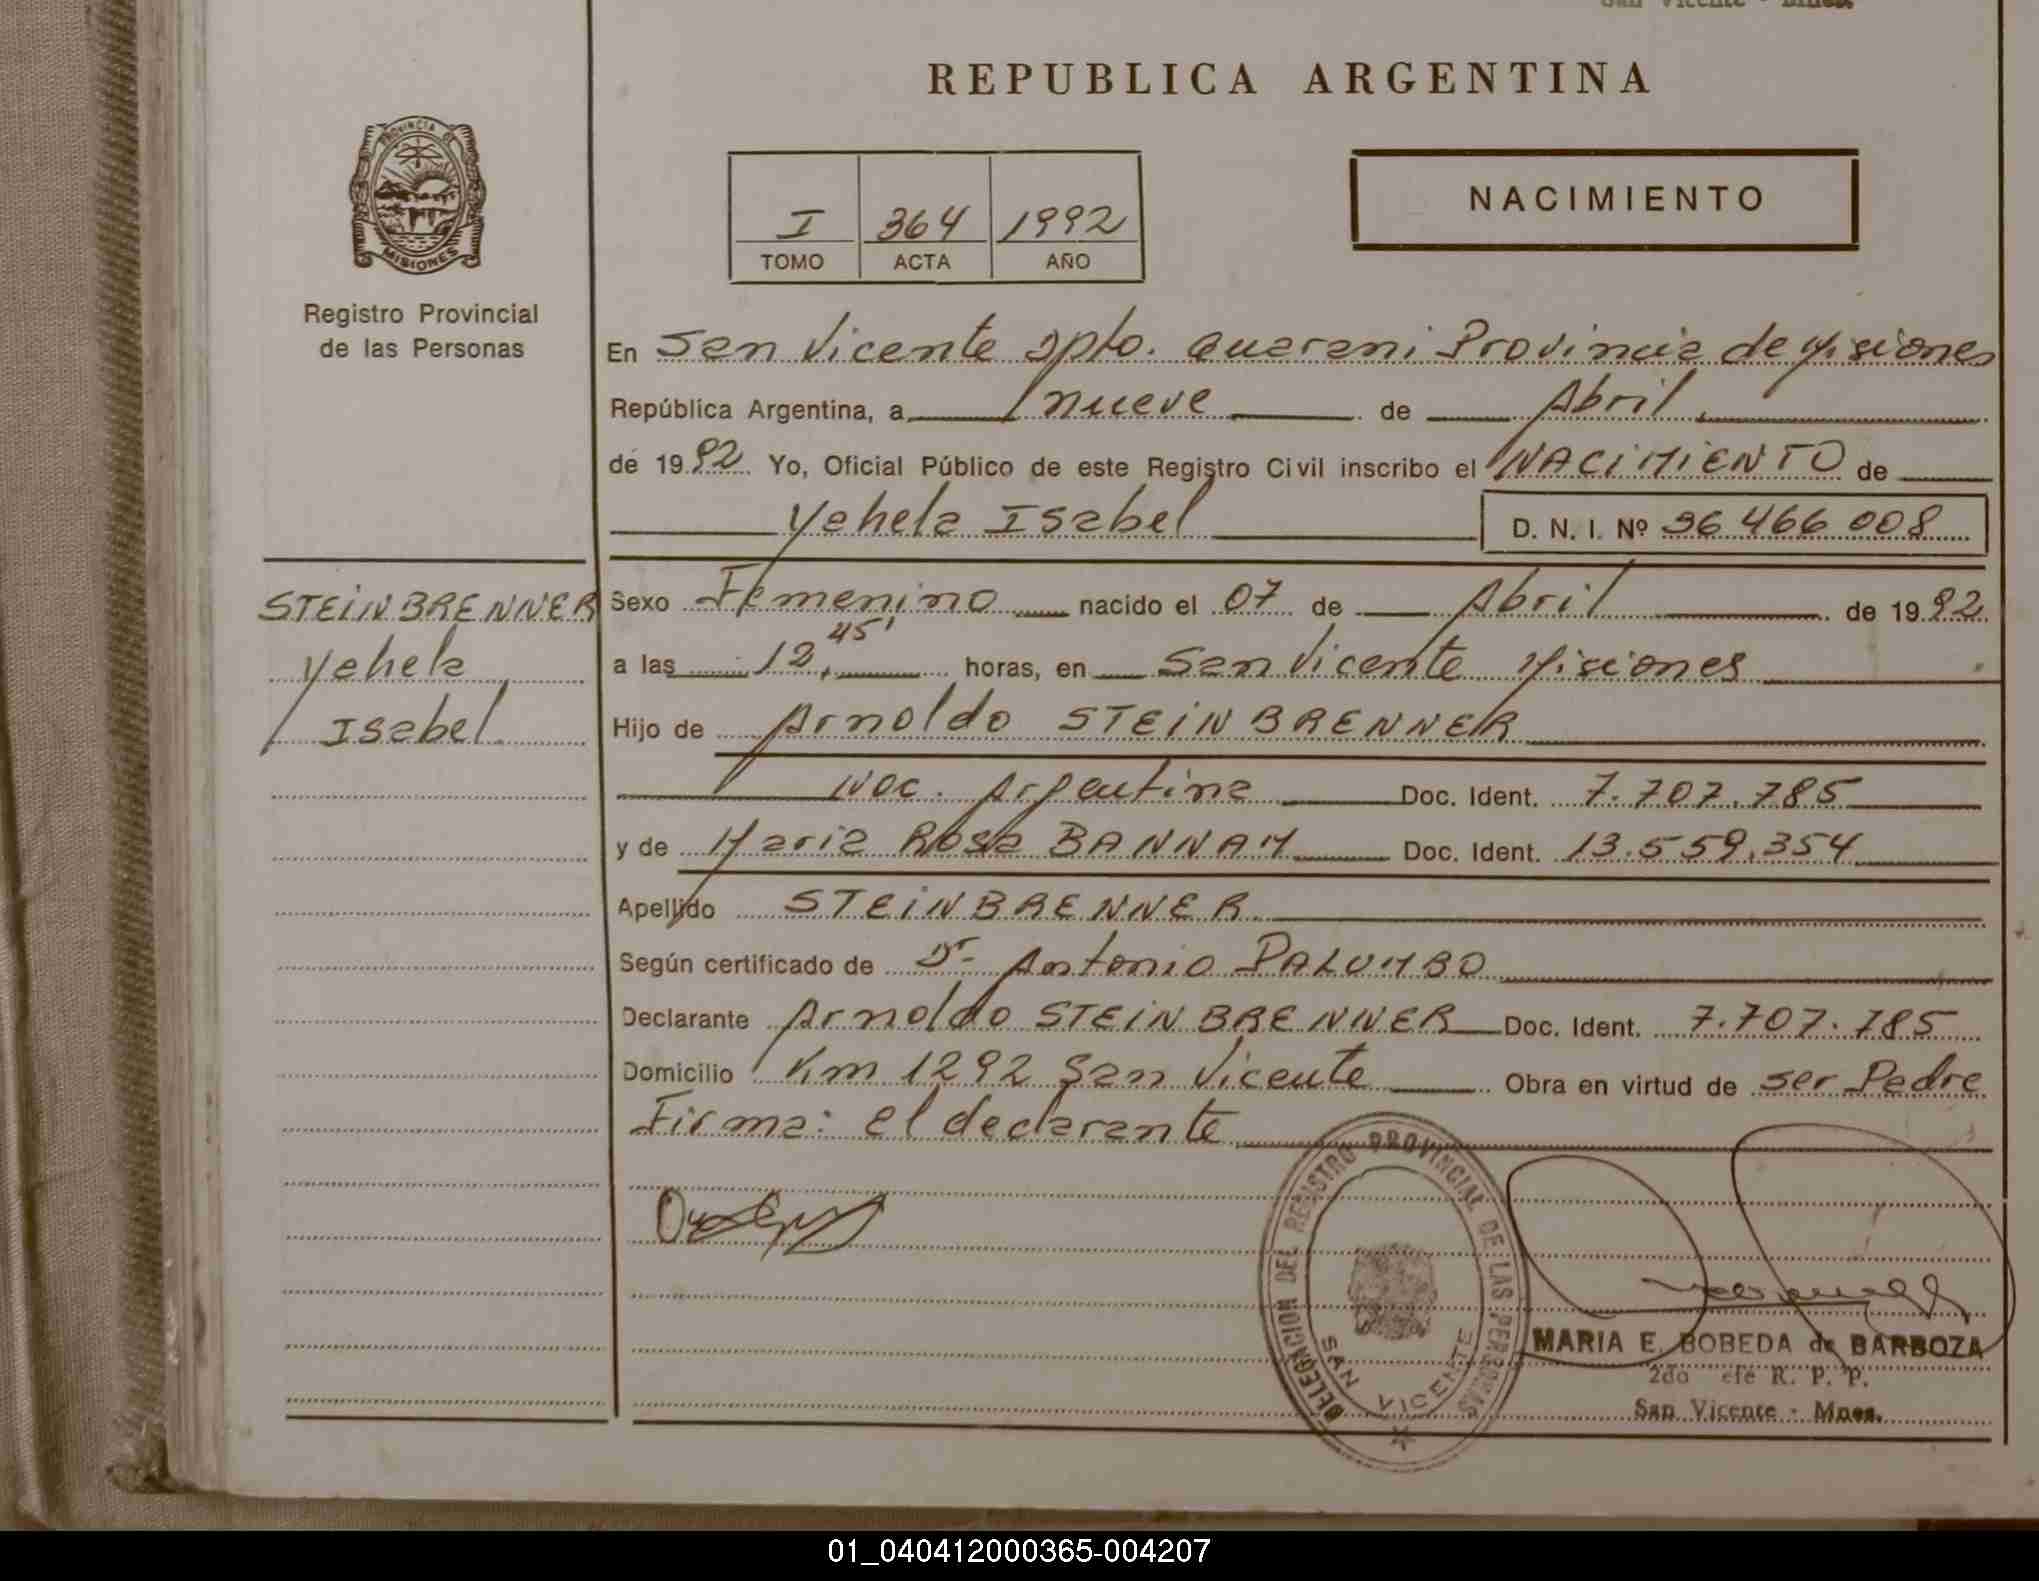 San Vicente - Mnes.
REPUBLICA ARGENTINA
PROVINCIA DE
MISIONES
Registro Provincial
de las Personas
I 364 1992
TOMO ACTA AÑO
NACIMIENTO
En San Vicente Dpto. Guarani Provincia de Misiones
República Argentina, a nueve de Abril
de 1992 Yo, Oficial Público de este Registro Civil inscribo el NACIMIENTO de
Yahela Isabel D. N. I. Nº 36 466 008
STEINBRENNER
Yahela
Isabel
Sexo Femenino nacido el 07 de Abril de 1992
a las 12,45' horas, en San Vicente Misiones
Hijo de Arnoldo STEINBRENNER
Nac. Argentina Doc. Ident. 7.707.785
y de Maria Rosa BANNAM Doc. Ident. 13.559.354
Apellido STEINBRENNER
Según certificado de Dr Antonio PALUMBO
Declarante Arnoldo STEINBRENNER Doc. Ident. 7.707.785
Domicilio Km 1292 San Vicente Obra en virtud de ser Padre
Firma: el declarante
DELEGACION DEL REGISTRO PROVINCIAL DE LAS PERSONAS
SAN VICENTE
MARIA E. BOBEDA de BARBOZA
2do efe R. P. P.
San Vicente - Mnes.
01_040412000365-004207